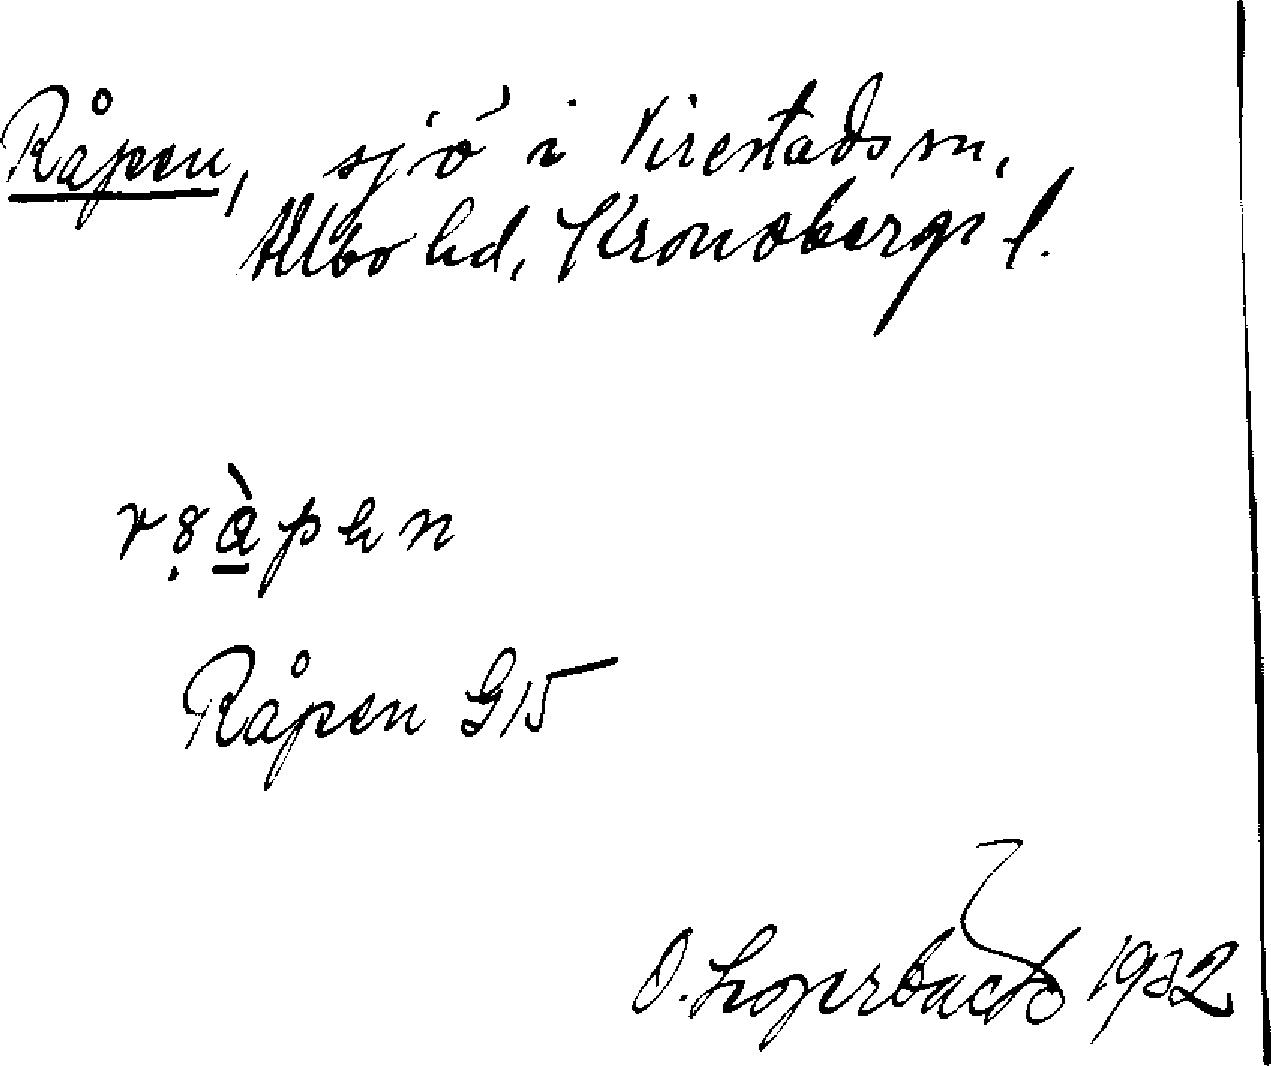 Råpen, sjö i Virestads sn,
Allbo hd, Kronobergs l.
Råpen G15
O. 1932